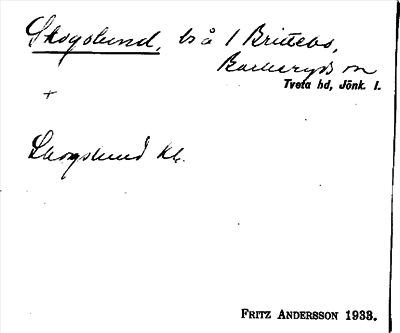 Skogslund, ts å 1 Brittebo,
Barkeryds sn
Tveta hd, Jönk. l.
+
Skogslund kk.
FRITZ ANDERSSON 1933.